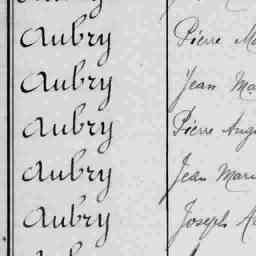 Aubry Pierre
Aubry Jean
Aubry Pierre
Aubry Jean
Aubry Joseph